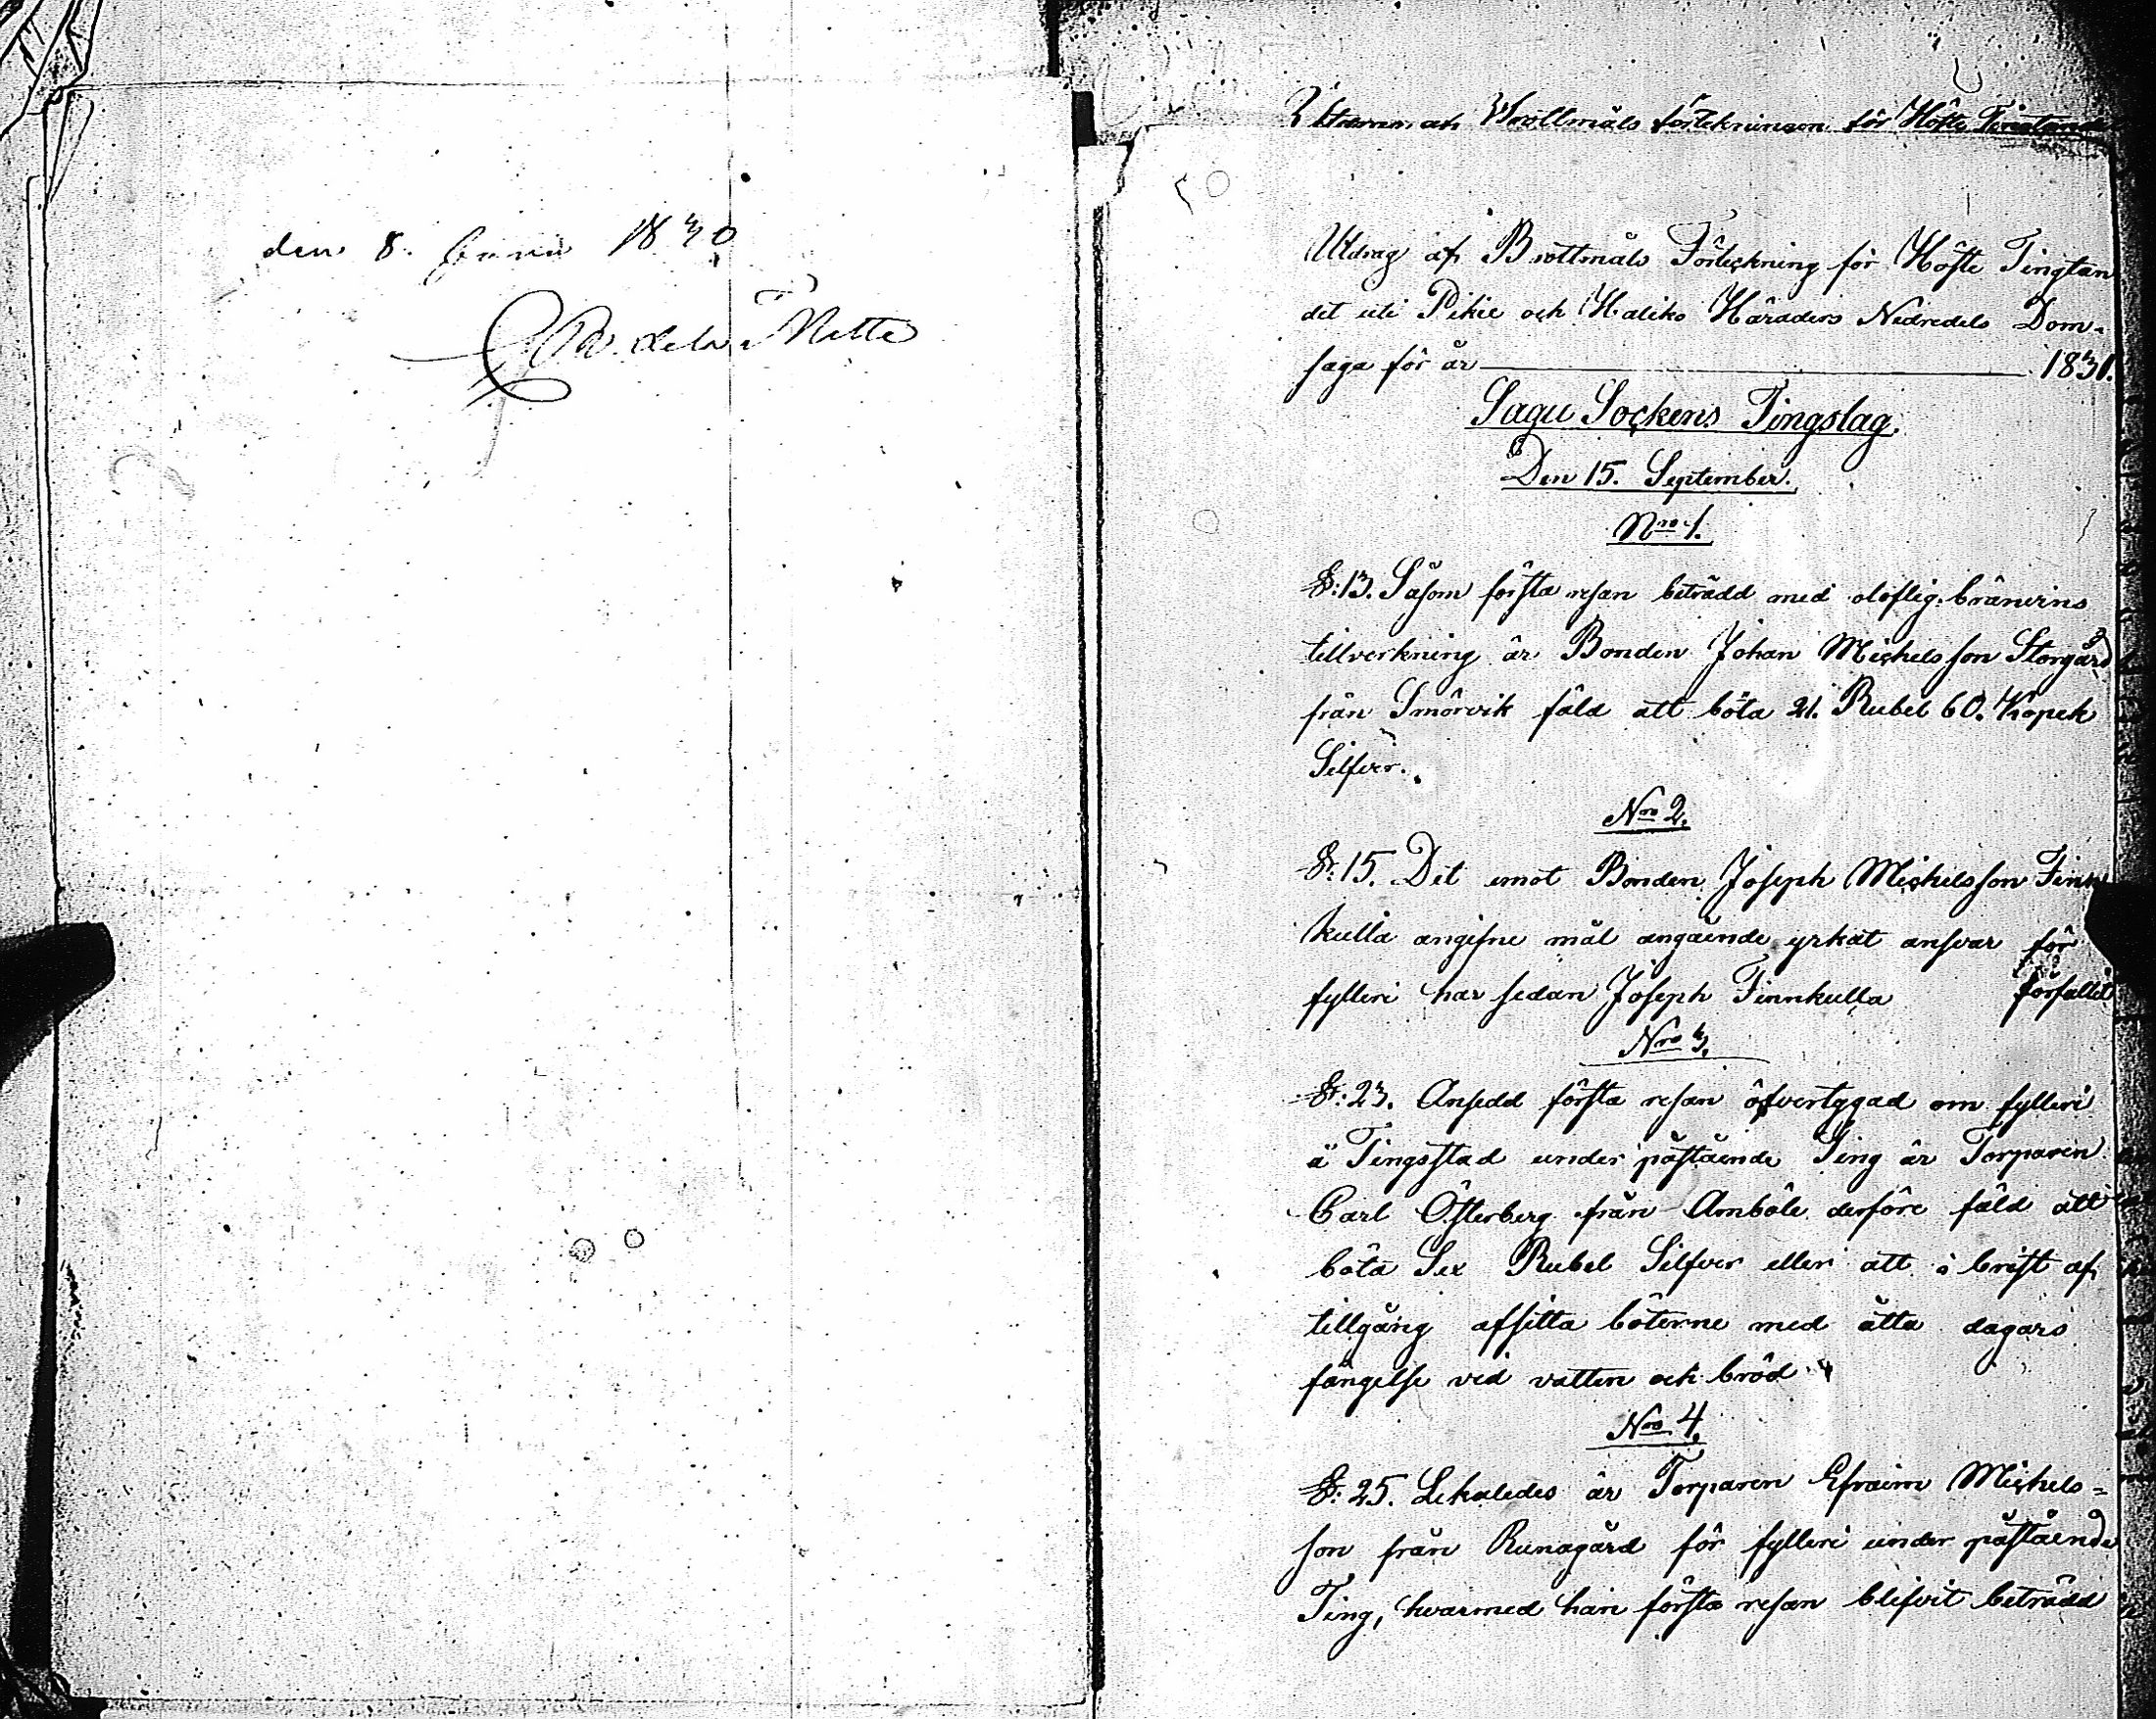 den 8. Junii 1830
De la Motte
Utdrag af Brottmåls förtekningen för Höste Tingtan
Utdrag af Brottmåls Förteckning för Höste Tingtan
det uti Pikie och Haliko Härader s Nedredels Dom-
saga för år 1831.
Sagu Sockens Tingslag.
Den 15. September.
Nro 1.
§: 13. Såsom första resan beträdd med oloflig bränvins
tillverkning är Bonden Johan Michelsson Storgård
från Smörvik fäld att böta 21. Rubel 60. Kopek
Silfver.
Nro 2.
§: 15. Det emot Bonden Joseph Michelsson Finn
kulla angifne mål angående yrkat ansvar för
fylleri har sedan Joseph Finnkulla förfallit
Nro 3.
§: 23. Ansedd första resan öfvertygad om fylleri
å Tingsstad under påstående Ting är Torparen
Carl Österberg från Amböle derföre fäld att
böta Sex Rubel Silfver eller att i brist af
tillgång afsitta böterne med åtta dagars
fängelse vid vatten och bröd.
Nro 4.
§: 25. Lekaledes är Torparen Efraim Michels=
son från Runagård för fylleri under påstående
Ting, hvarmed han första resan blifvit beträdd